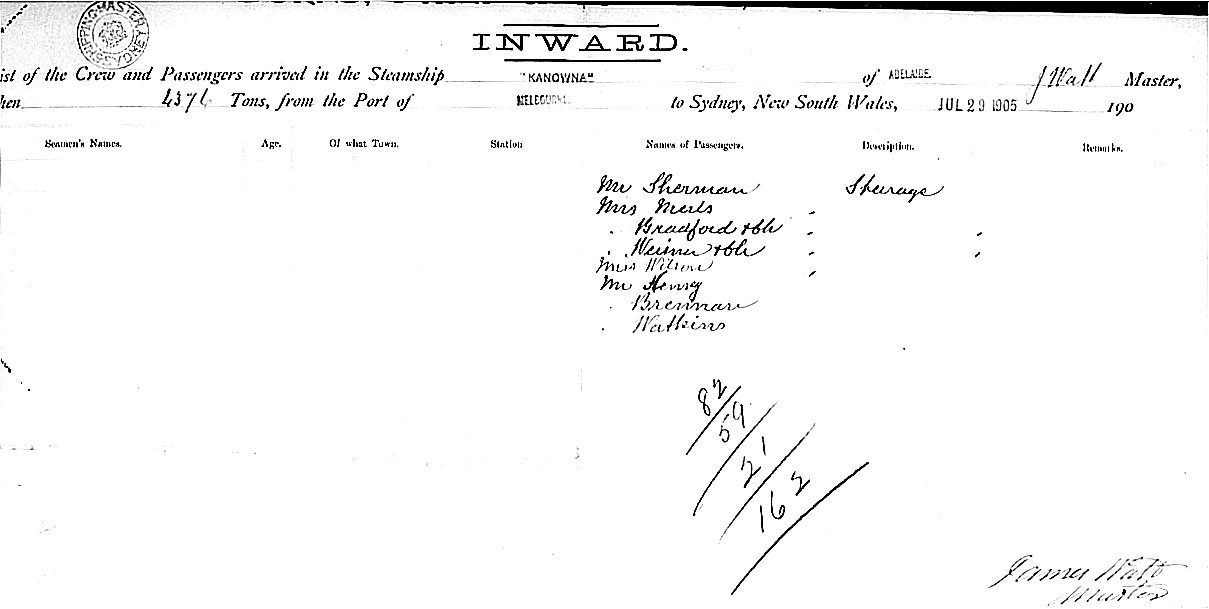 SHIPPING MASTER SYDNEY
INWARD.
ist of the Crew and Passengers arrived in the Steamship "KANOWNA" of ADELAIDE. J Watt Master,
hen 4376 Tons, from the Port of MELBOURNE. to Sydney, New South Wales, JUL 29 1905 190
Seamen's Names. Age. Of what Town. Station Names of Passengers. Description. Remarks.
Mr Sherman Steerage
Mrs
" Bradford & ch "
" & ch "
Miss Wilson "
Mr Henry
" Brennan
" Watkins
82
59
21
162
James Watt
Master